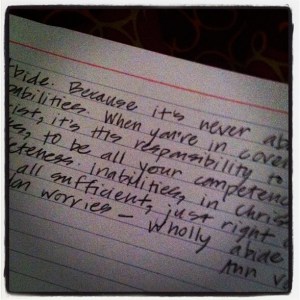 bide. Because it's never ab
abilities. When you're in coven
ist, it's His responsibility to
ss, to be all your competenc
eteness. Inabilities, in Christ
all sufficient, just right
on worries — Wholly abide
Ann V